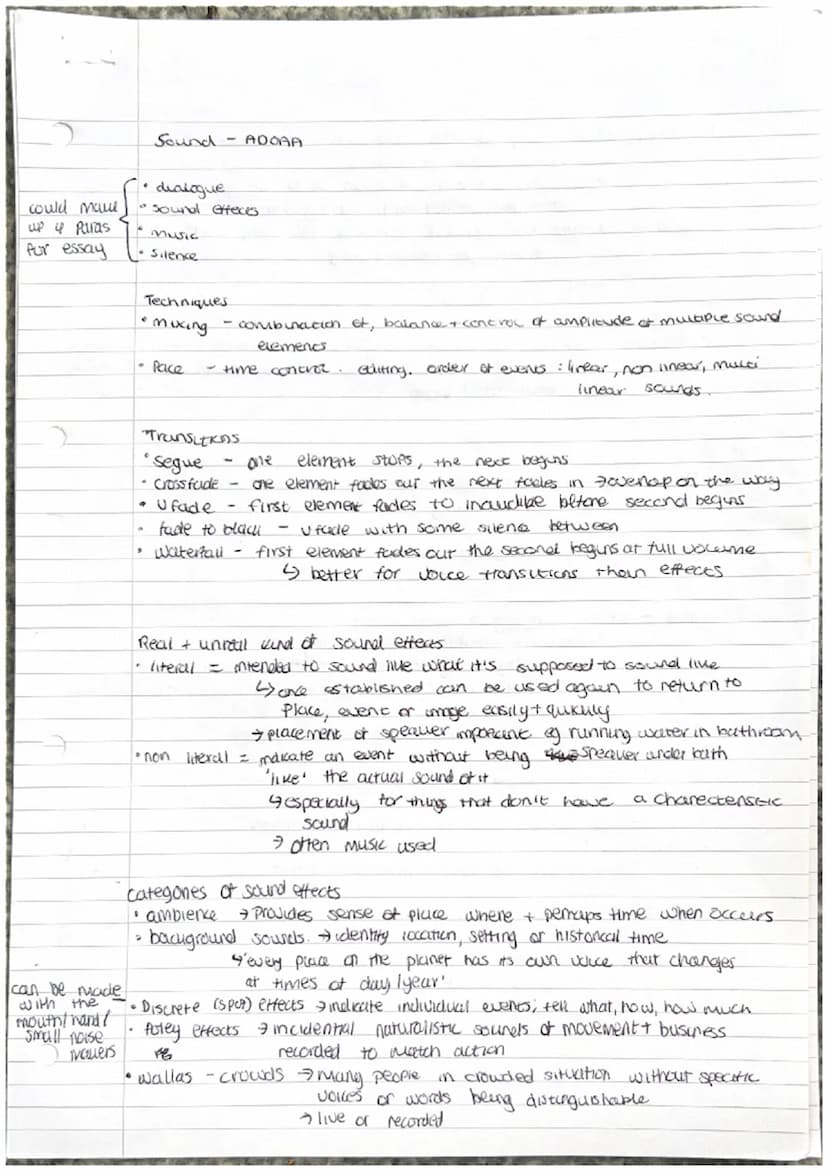 Sound - ADOAA
• dialogue
• sound effects
• music
• silence
could make
up 4 paras
for essay
Techniques
• mixing - combination of, balance + control of amplitude of multiple sound
elements
• Pace - time control. editing. order of events : linear, non linear, multi
linear sounds.
Transitions
• segue - one element stops, the next begins
• crossfade - one element fades out the next fades in → overlap on the way
• v fade - first element fades to inaudible before second begins
• fade to black - v fade with some silence between
• waterfall - first element fades out the second begins at full volume
↳ better for voice transitions than effects
Real + unreal kind of sound effects
• literal = intended to sound like what it's supposed to sound like
↳ once established can be used again to return to
place, event or image easily + quickly
→ placement of speaker important eg running water in bathroom,
speaker under bath
• non literal = indicate an event without being
'like' the actual sound of it
↳ especially for things that don't have a characteristic
sound
→ often music used
categories of sound effects
• ambience → Provides sense of place where + perhaps time when occurs
• background sounds. → identity location, setting or historical time
↳ 'every place on the planet has its own voice that changes
at times of day / year'
can be made
with the
mouth/hand/
small noise
makers
• Discrete (spot) effects → indicate individual events; tell what, how, how much
• foley effects → incidental naturalistic sounds of movement + business
recorded to match action
• wallas - crowds → many people in crowded situation without specific
voices or words being distinguishable
→ live or recorded